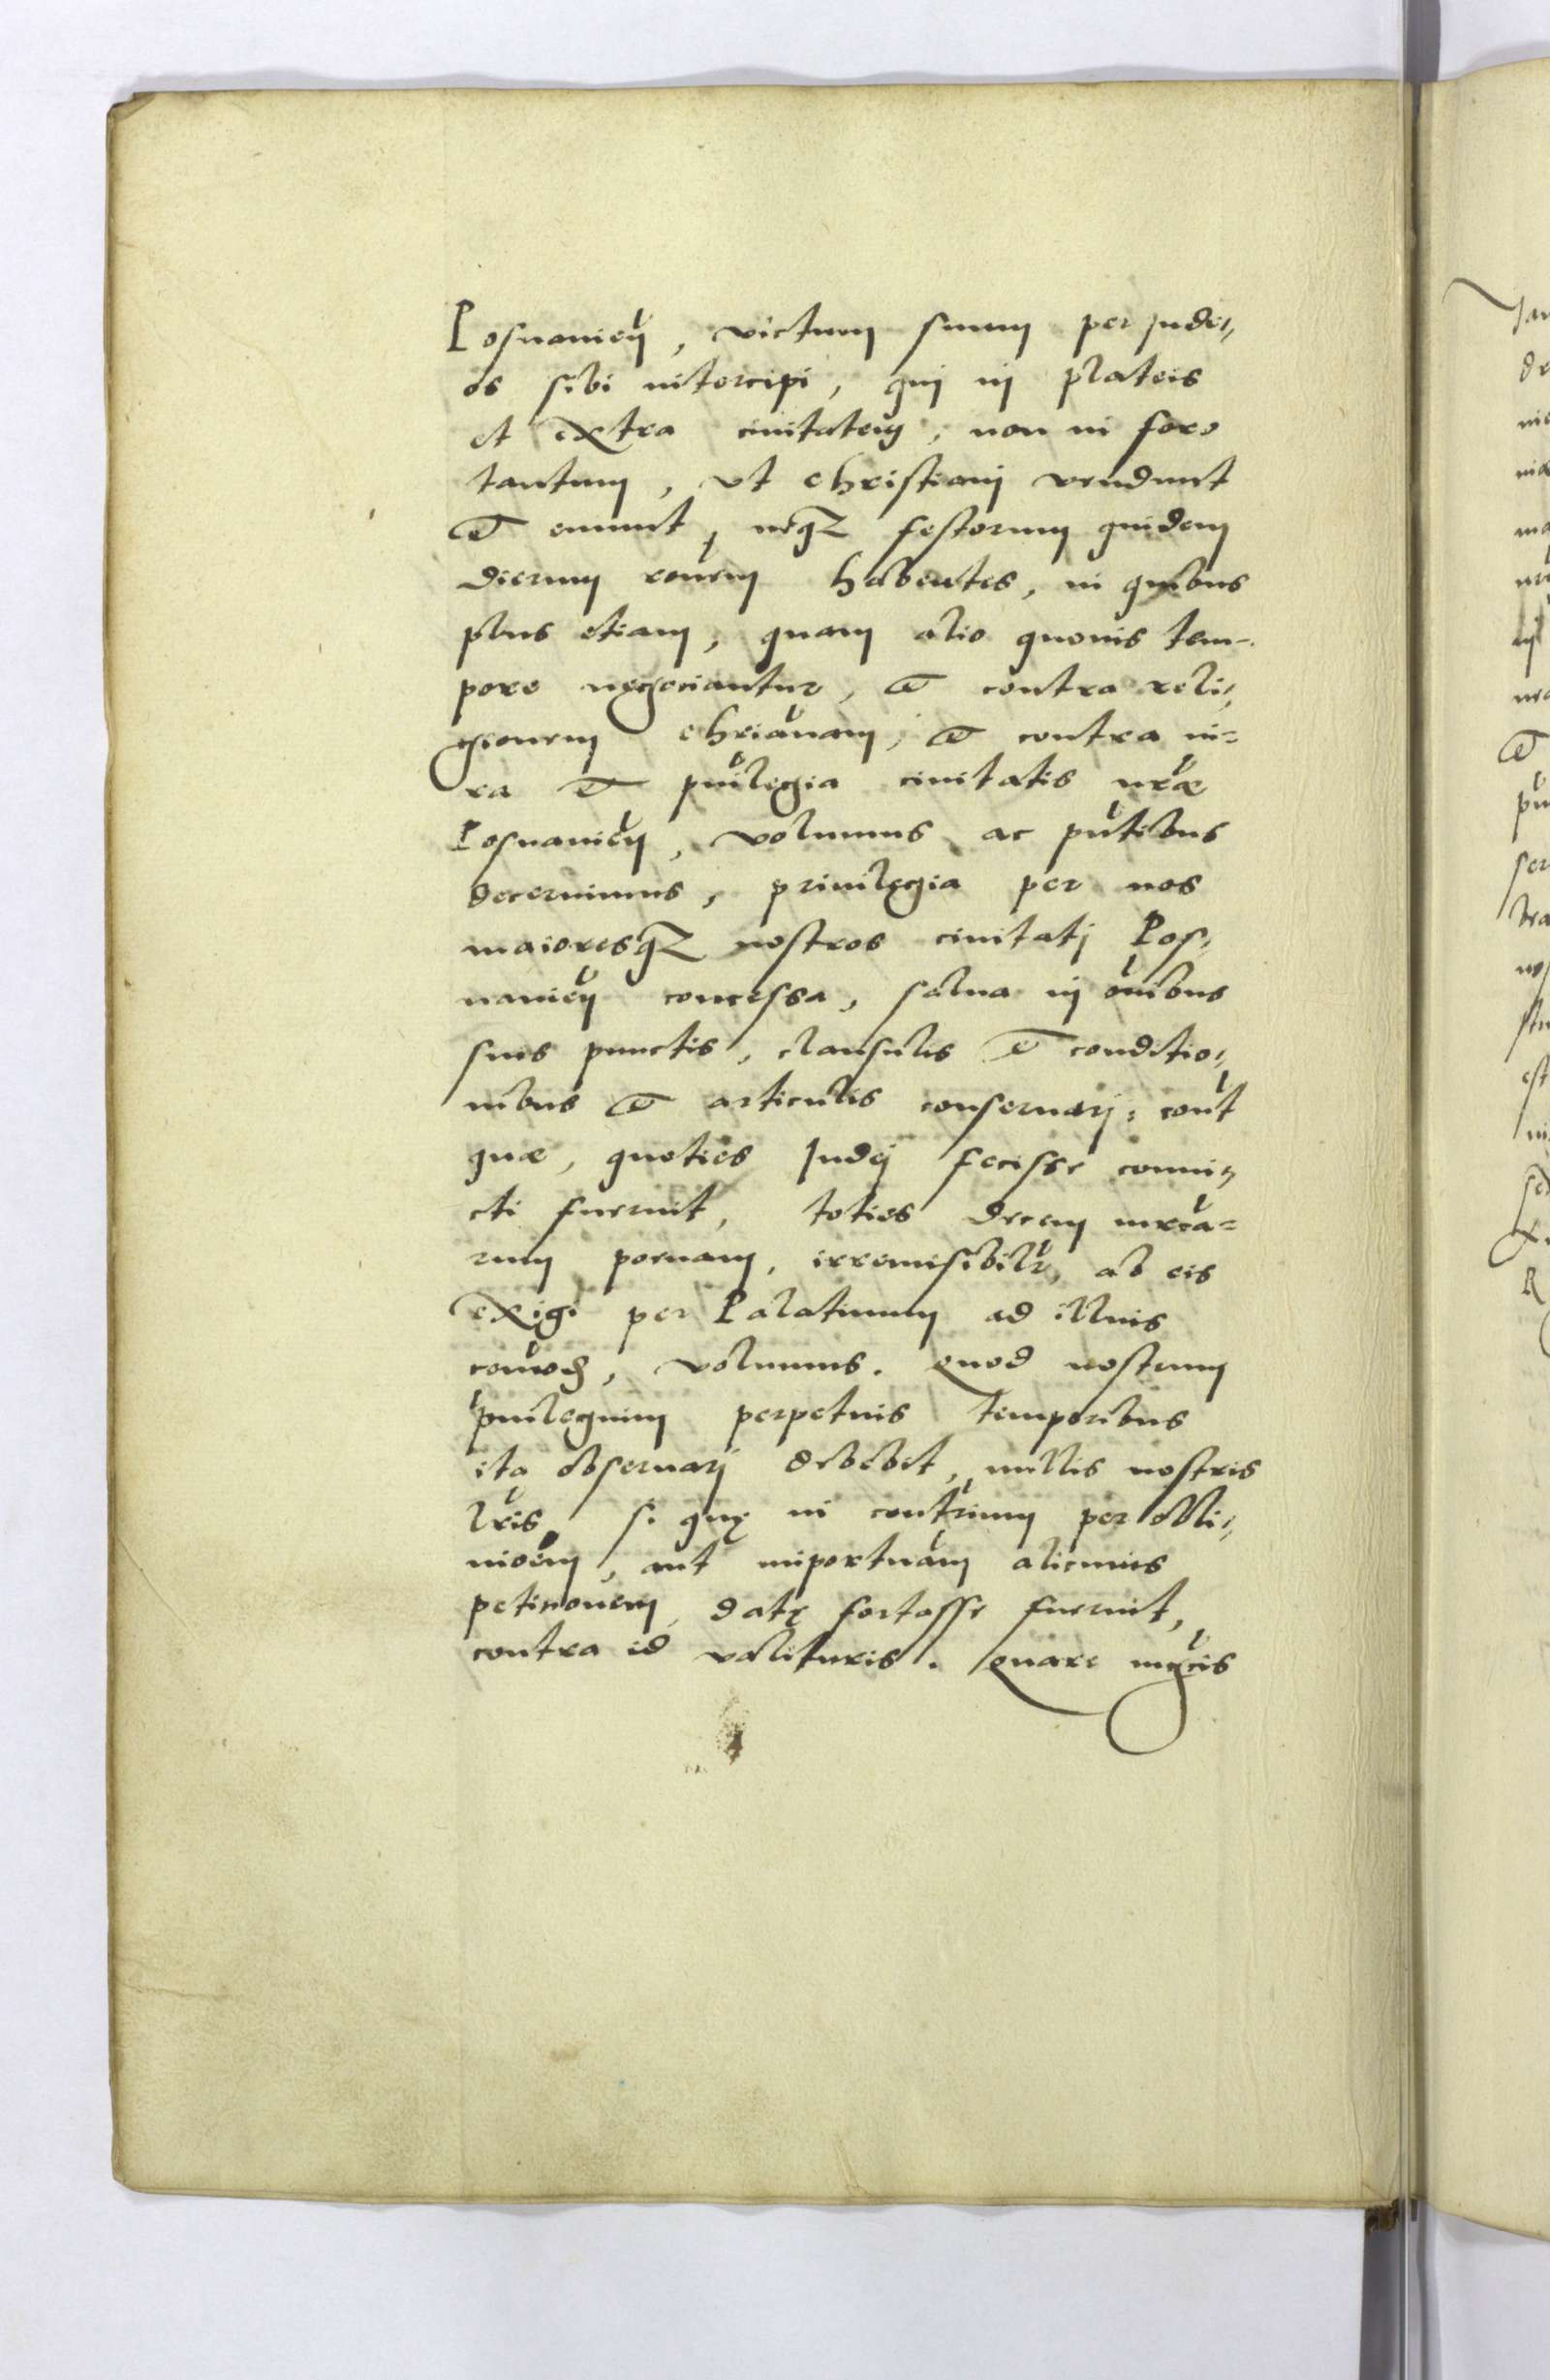 Posnanien̄, victum suum per Iude-
os sibi intercipi, qui in plateis
et extra ciuitatem, non in foro
tantum, vt christiani vendunt
et emunt, neq₃ festorum quidem
dierum rōnem habentes, in quibus
plus etiam, quam alio quouis tem-
pore negociantur, et contra reli-
gionem chriānam, et contra iu-
ra et puīlegia ciuitatis nr̄æ
Posnanien̄, volumus ac pn̄tibus
decernimus, priuilegia per nos
maioresq₃ nostros ciuitati Pos-
nanien̄ concessa, salua in om̄ibus
suis punctis, clausulis et conditio-
nibus et articulis conseruari: cont̄
quæ, quoties Iudei fecisse conui-
cti fuerint, toties decem mrca-
rum poenam, irremisibilr̄, ab eis
exigi per Palatinum ad illius
, volumus. Quod nostrum
puīlegium perpetuis temporibus
ita obseruari debebit, nullis nostris
lr̄is, si quę in contr̄ium per obli-
uioēm, aut importunām alicuius
petitionem, datę fortasse fuerint,
contra id valituris. Quare